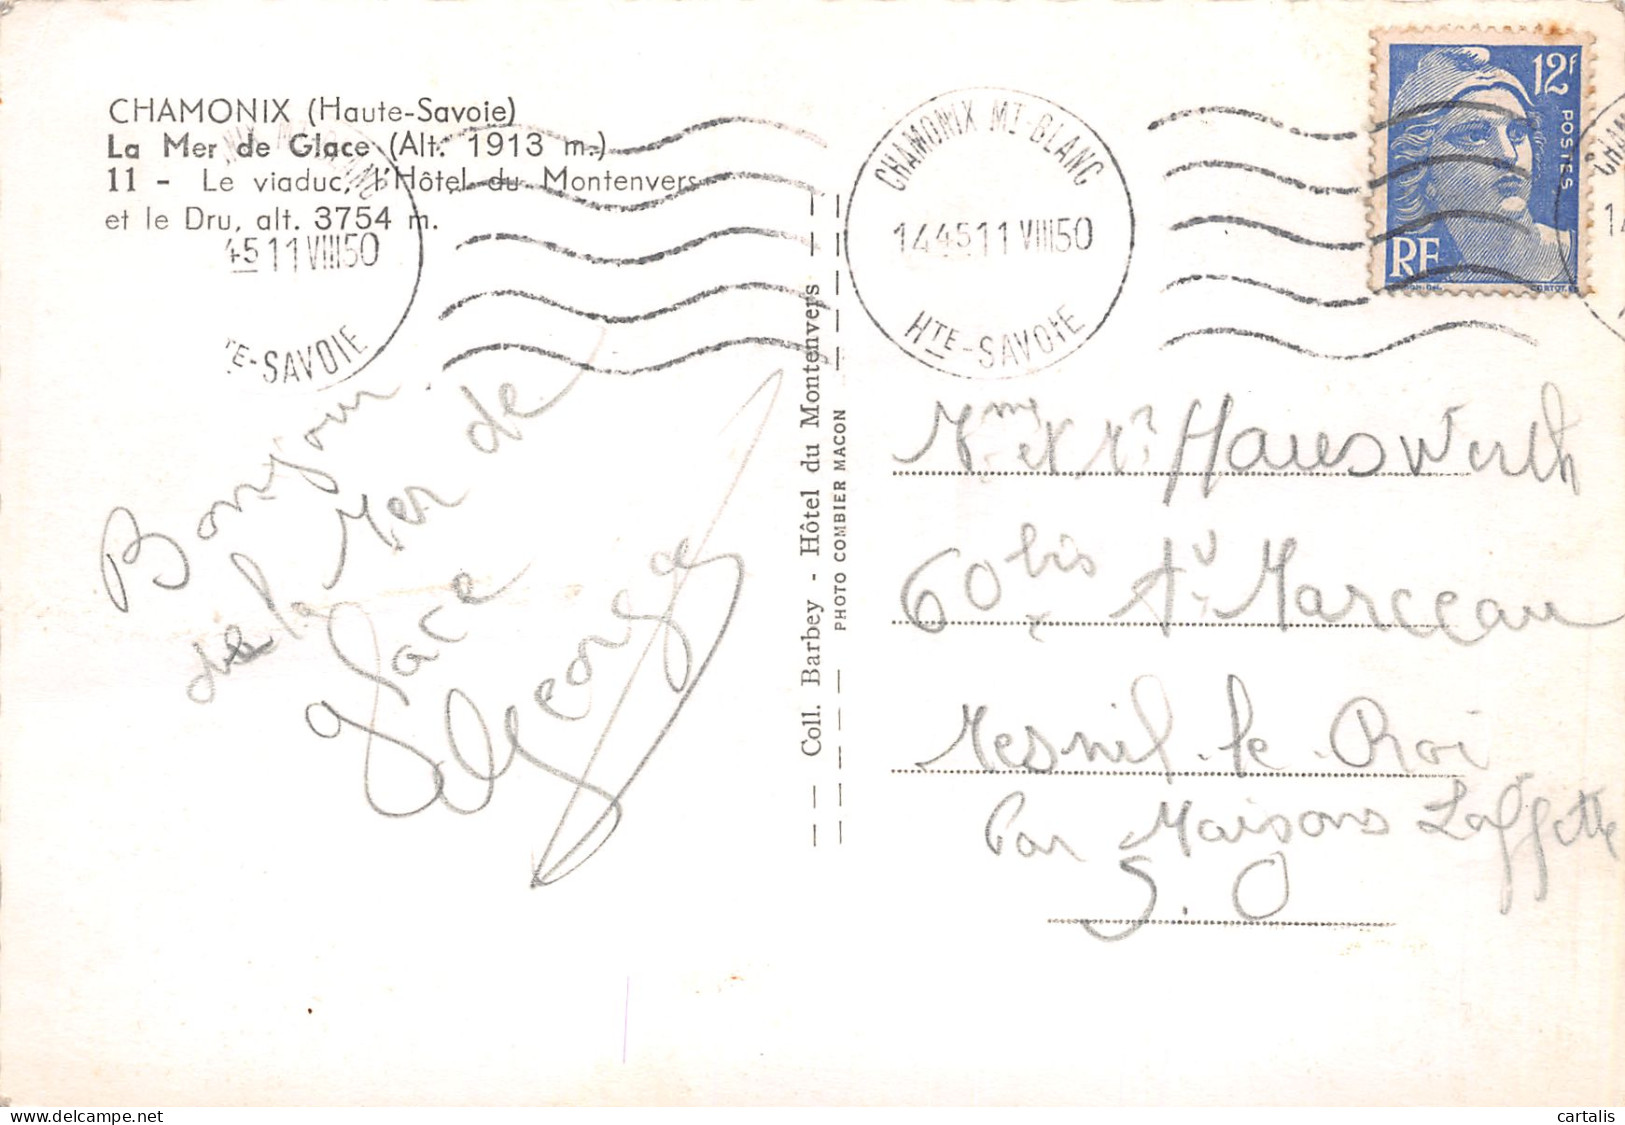 CHAMONIX (Haute-Savoie)
La Mer de Glace (Alt. 1913 m.)
11 - Le viaduc, l'Hôtel du Montenvers
et le Dru, alt. 3754 m.
45 11 VIII 50
TE-SAVOIE
CHAMONIX MT-BLANC
1445 11 VIII 50
HTE-SAVOIE
12f
POSTES
RF
Bonjour
de la Mer de
Glace
George
Coll. Barbey - Hôtel du Montenvers
PHOTO COMBIER MACON
Mme et Mr Hauswirth
60 bis Av Marceau
Mesnil-le-Roi
Par Maisons Laffitte
S.O
cartalis